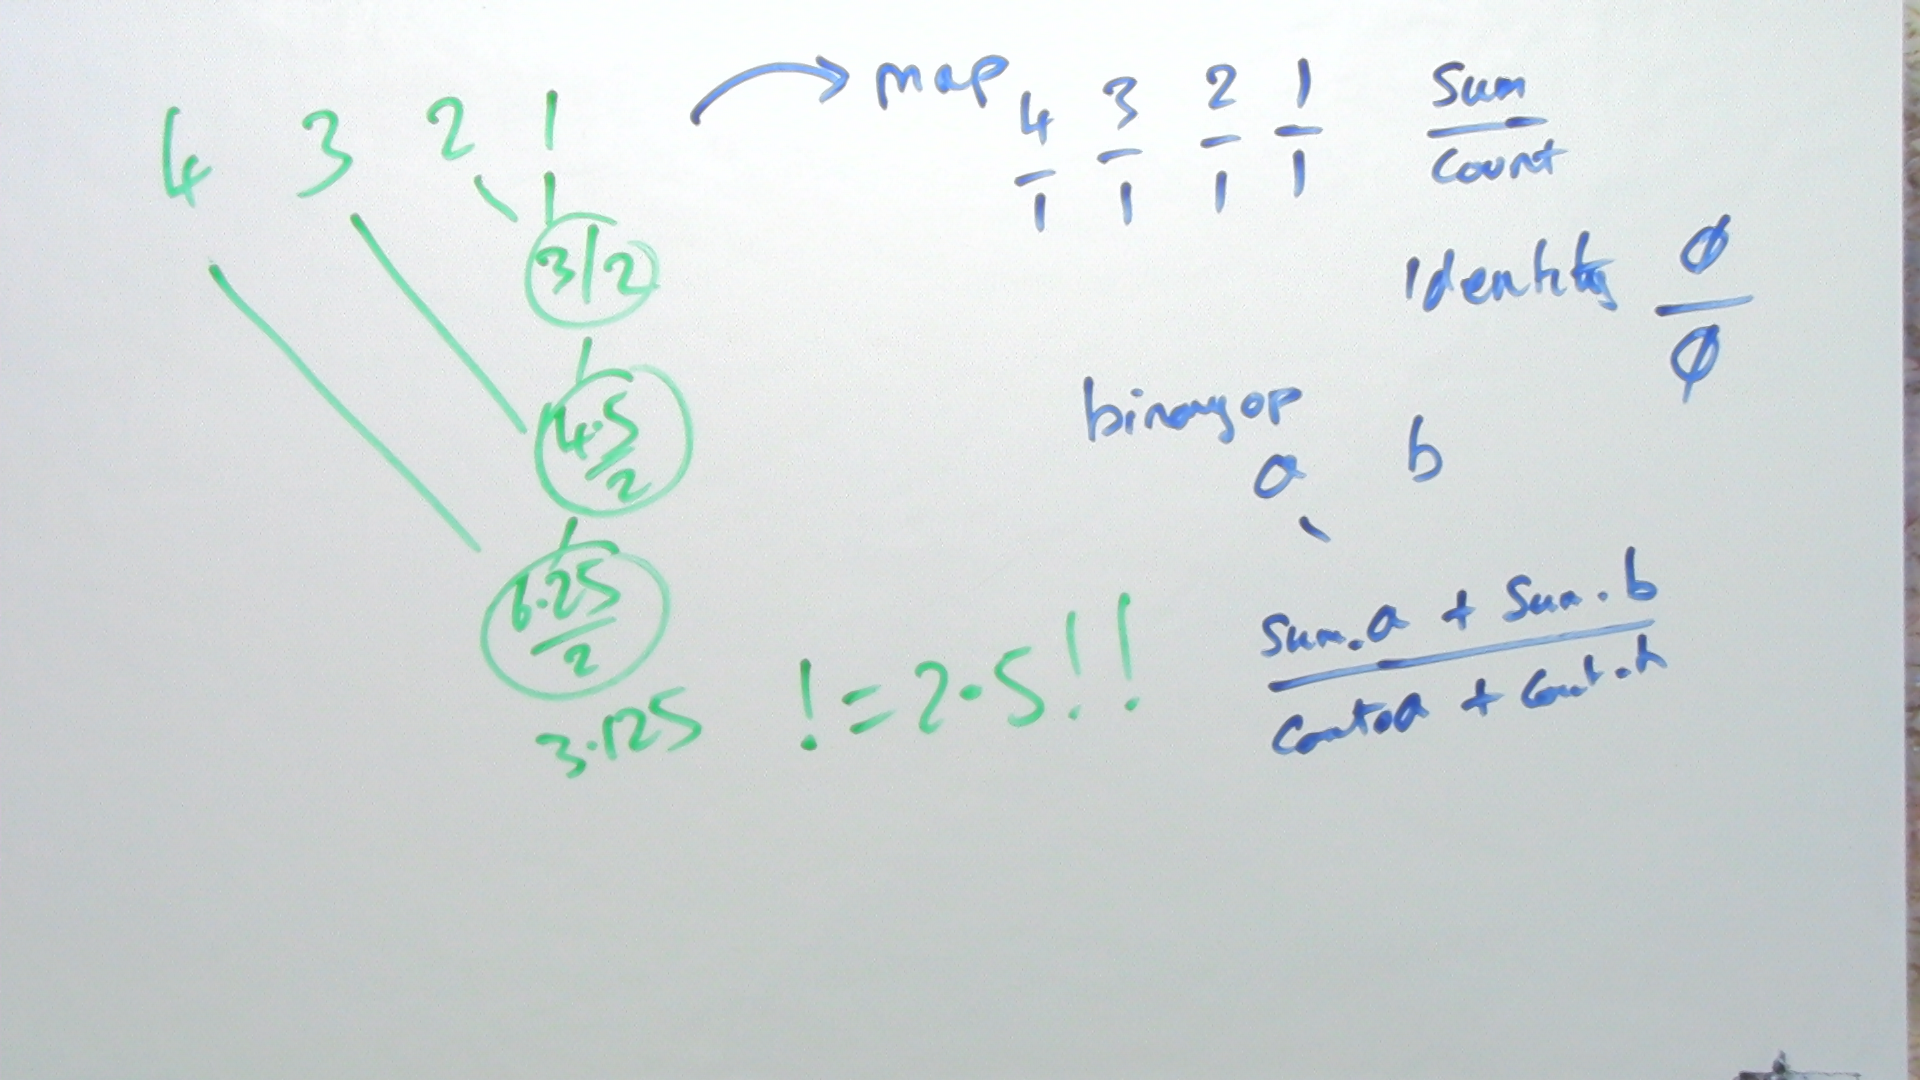 4 3 2 1
3/2
4.5
2
6.25
2
3.125 != 2.5!!
map
4 3 2 1
1 1 1 1
Sum
Count
Identity
0
0
binaryop
a b
Sum.a + Sum.b
Count.a + Count.b